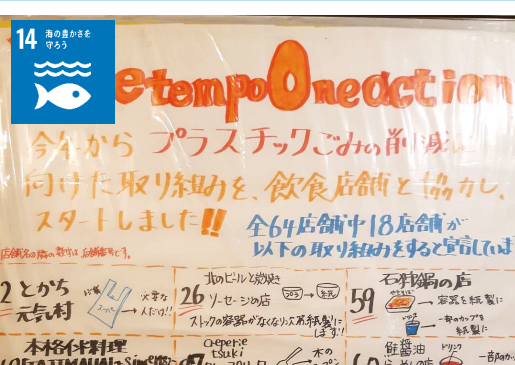 14 海の豊かさを
守ろう
etempo Oneaction
今年から プラスチックごみの削減に
向けた取り組みを、飲食店舗と協力し、
スタートしました!!
全64店舗中18店舗が
以下の取り組みをすると宣言していま
店舗名の隣の数字は、店舗番号です。
2 とかち
元気村
レジ袋
スーパー
必要な
人だけ!!
26 北のビールと炭焼き
ソーセージの店
プラ → 紙
ストックの容器がなくなり次第紙製に
します!!
59 石狩鍋の店
容器を紙製に
一部のカップを
紙製に
本格インド料理
creperie
tsuki
木の
鮭醤油
らーめんの店
ドリンク
一部のカッ